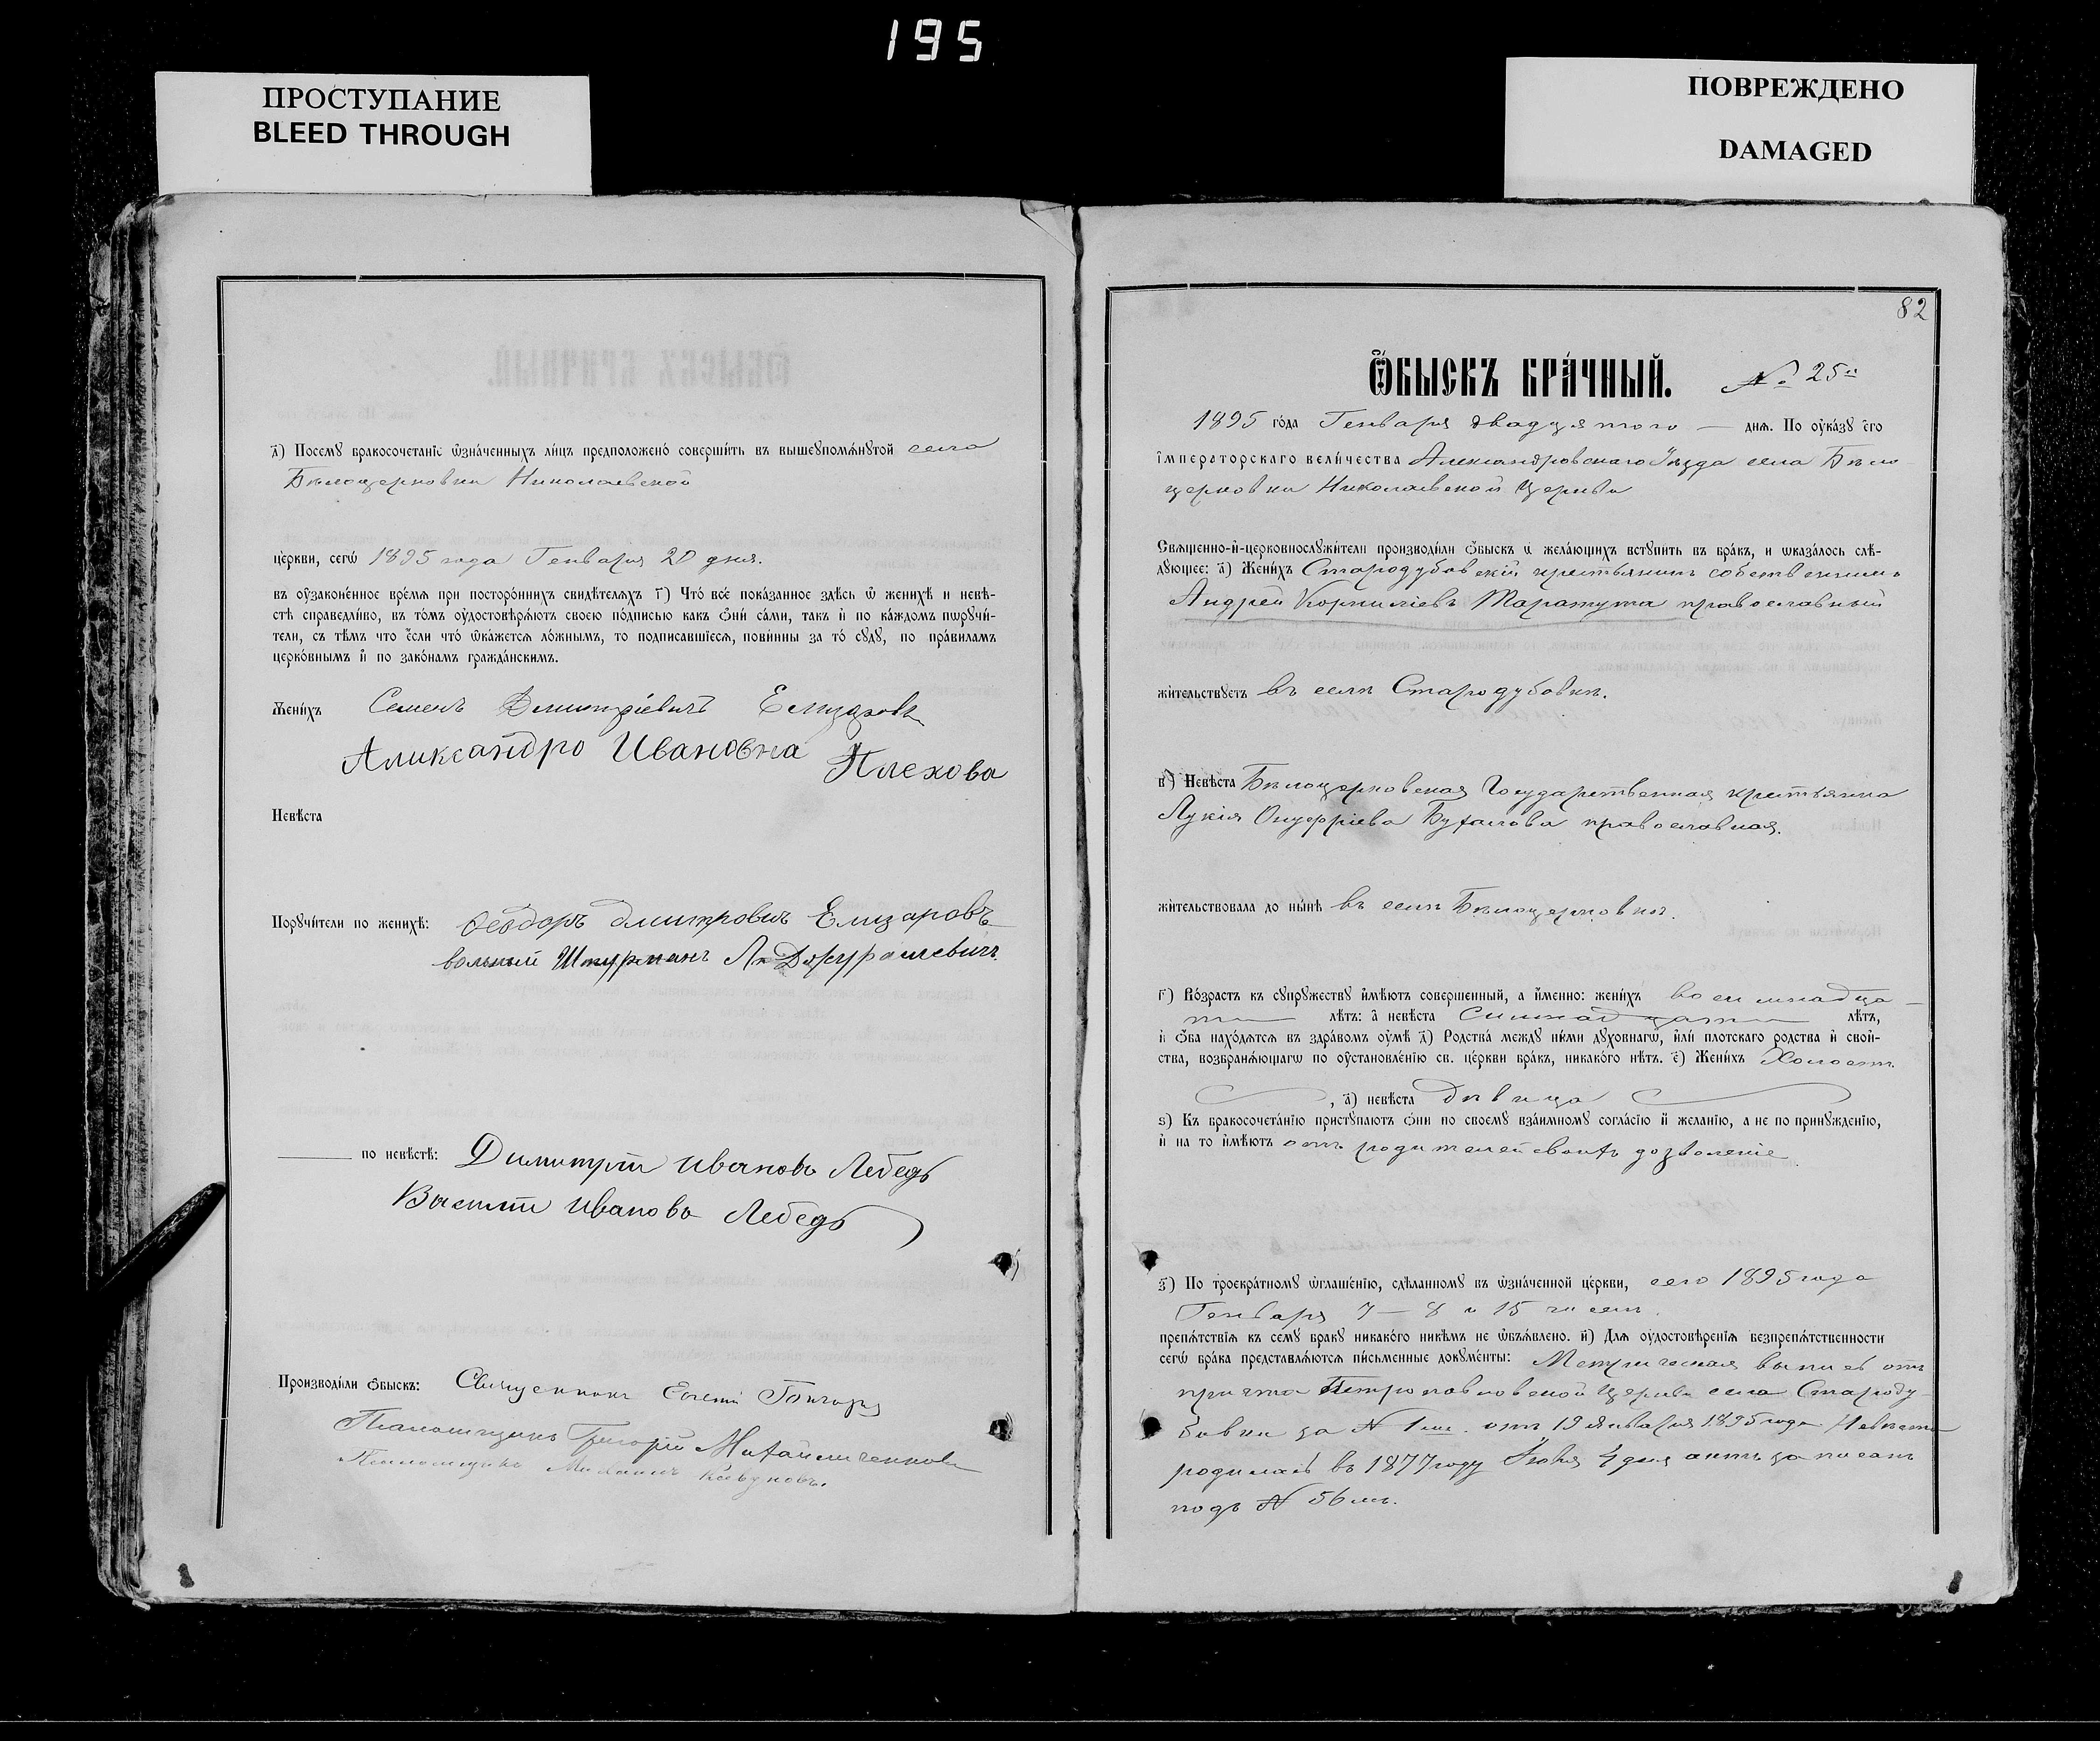 195
ПРОСТУПАНИЕ
BLEED THROUGH
ПОВРЕЖДЕНО
DAMAGED
з҃) Посемꙋ бракосочетанїе ѡзна́ченныхъ ли́цъ предположено́ соверши́ть въ вышеꙋпомѧ́нꙋтой села
Бѣлоцерковки Николаевской
це́ркви, сегѡ̀ 1895 года Генваря 20 дня.
въ оу҆зако́ненное вре́мѧ при посторо́ннихъ свидѣ́телѧхъ г҃) Что̀ всѐ пока́занное здѣ́сь ѡ҆ женихѣ̀ и невѣ́-
стѣ справедли́во, въ то́мъ оу҆достовѣрѧ́ютъ своею по́дписью какъ ѻ҆нѝ са́ми, такъ и҆ по ка́ждомъ порꙋчи́-
тели, съ тѣ́мъ что є҆́сли что̀ ѡ҆ка́жетсѧ ло́жнымъ, то подписавшїесѧ, пови́нны за то̀ сꙋдꙋ̀, по пра́виламъ
церко́внымъ и҆ по зако́намъ гражда́нскимъ.
Жени́хъ Семенъ Дмитріевичъ Елизаровъ
Александро Ивановна Плехова
Невѣ́ста
Порꙋчи́тели по женихѣ̀: Ѳеодоръ Дмитровичъ Елизаровъ
вольный Штурманъ
по невѣ́стѣ: Димитрій Ивановъ Лебедь
Василій Ивановъ Лебедь
Производи́ли ѻ҆́быскъ: Священникъ
Псаломщикъ Григорій Михайличенковъ
Псаломщикъ Михаилъ
82
Ѻ҆́БЫСКЪ БРА́ЧНЫЙ. № 25й
1895 го́да Генваря двадцятого — днѧ̀. По оу҆ка́зꙋ є҆гѡ̀
і҆мператорскаго вели́чества Александровскаго Уѣзда села Бѣло
церковки Николаевской Церкви
Свѧще́нно-и҆-церковнослꙋжи́тели производи́ли ѻ҆́быскъ ѡ҆ жела́ющихъ встꙋпи́ть въ бра́къ, и ѡказа́лось слѣ́-
дꙋющее: а҃) Жени́хъ Стародубовскій крестьянинъ собственникъ
Андрей Корниліевъ Таратута православный
жи́тельствꙋетъ въ селѣ Стародубовкѣ.
в҃) Невѣ́ста Бѣлоцерковская Государственная крестьянка
Лукія Онуфріева Буталова православная.
жи́тельствовала до ны́нѣ въ селѣ Бѣлоцерковкѣ.
г҃) Во́зрастъ къ сꙋпрꙋ́жествꙋ и҆мѣ́ютъ соверше́нный, а и҆́менно: жени́хъ восемнадца
ти лѣ́тъ: а҆ невѣ́ста семнадцати лѣ́тъ,
и҆ ѻ҆́ба нахо́дѧтсѧ въ здра́вомъ оу҆мѣ̀ д҃) Родства̀ междꙋ ни́ми дꙋхо́внагѡ, и҆лѝ плотскаго родства и҆ сво́й-
ства, возбранѧ́ющагѡ по оу҆становле́нїю св. це́ркви бра́къ, никако́го нѣ́тъ. є҃) Жени́хъ Холостъ
, а҃) невѣ́ста дѣвица
ѕ҃) Къ бракосочета́нїю пристꙋпа́ютъ ѻ҆нѝ по своемꙋ̀ вза́имномꙋ согла́сїю и҆ жела́нїю, а не по принꙋжде́нїю,
и҆ на то̀ и҆мѣ́ютъ отъ родителей своихъ дозволеніе.
з҃) По троекра́тномꙋ ѡ҆глаше́нїю, сдѣ́ланномꙋ въ ѡ҆зна́ченной це́ркви, сего 1895 года
Генваря 7 — 8 и 15 чиселъ.
препѧ́тствїѧ къ семꙋ̀ бра́кꙋ никако́го никѣ́мъ не ѡ҆бъѧ́влено. и҃) Длѧ̀ оу҆достовѣ́ренїѧ безпрепѧ́тственности
сегѡ̀ бра́ка представлѧ́ютсѧ пи́сьменные докꙋме́нты: Метрическая выпись отъ
причта Петропавловской Церкви села Староду
бовки за № 1мъ отъ 19 Января 1895 года Невѣста
родилась въ 1877 году Іюня 4 дня актъ записанъ
подъ № 56мъ.